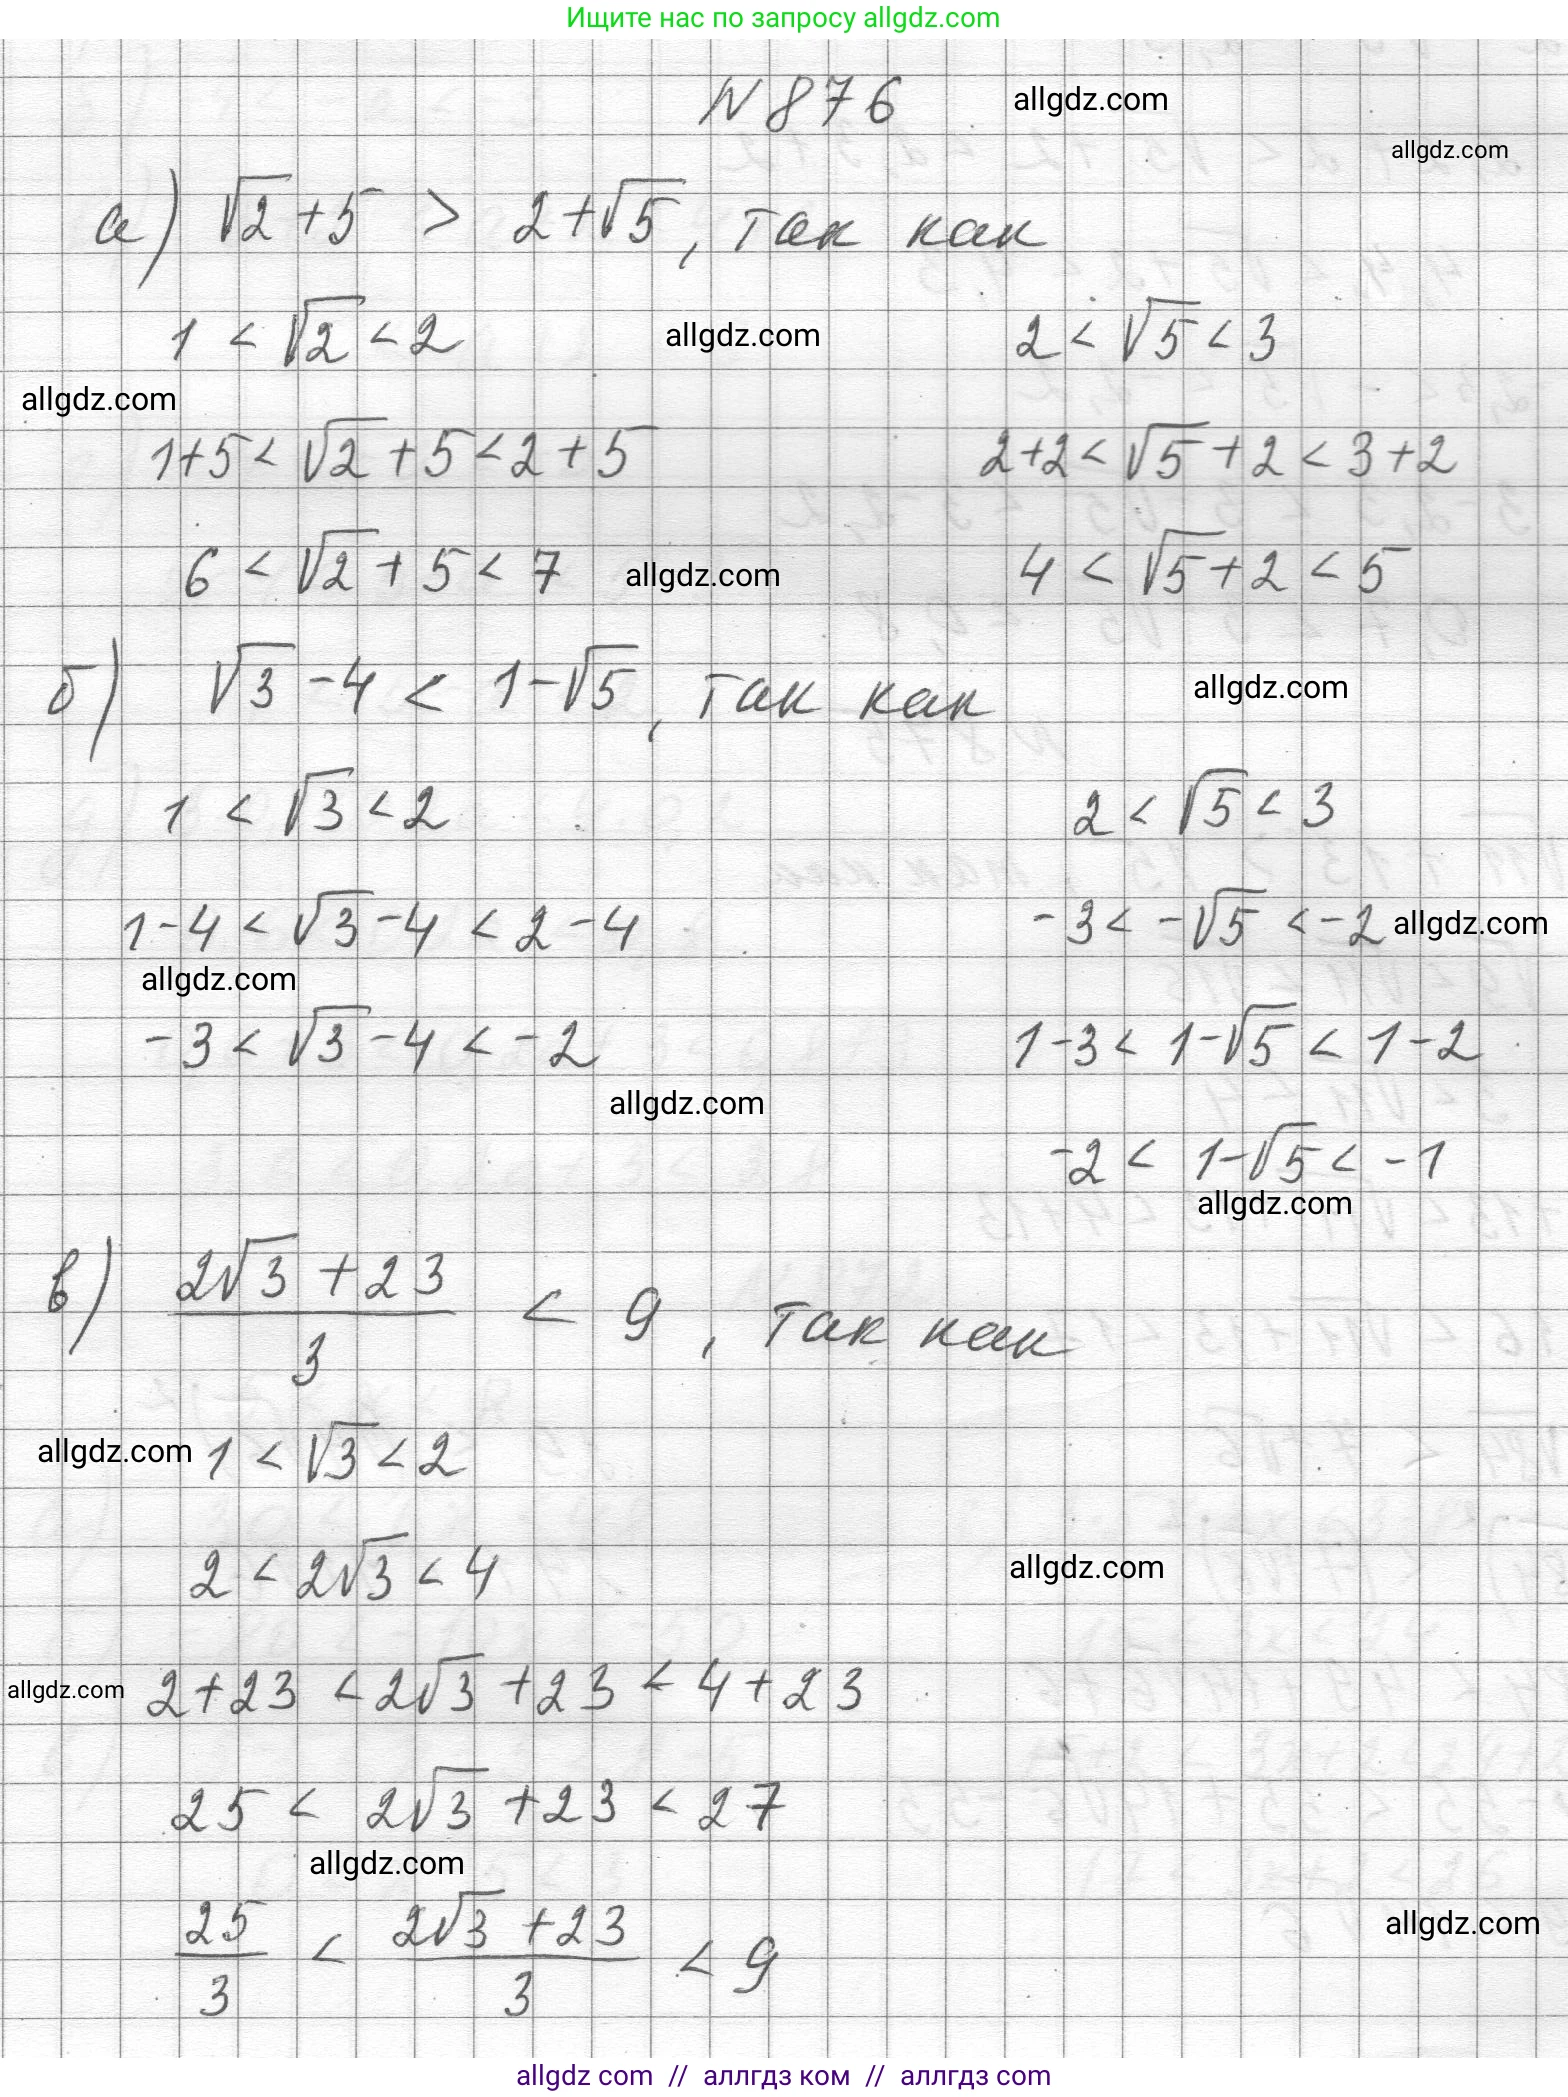 Ищите нас по запросу allgdz.com
N 876 allgdz.com
allgdz.com
а) √2 + 5 > 2 + √5, так как
1 < √2 < 2 allgdz.com 2 < √5 < 3
allgdz.com
1+5 < √2 + 5 < 2 + 5 2+2 < √5 + 2 < 3 + 2
6 < √2 + 5 < 7 allgdz.com 4 < √5 + 2 < 5
б) √3 - 4 < 1 - √5, так как allgdz.com
1 < √3 < 2 2 < √5 < 3
1-4 < √3 - 4 < 2 - 4 -3 < -√5 < -2 allgdz.com
allgdz.com
-3 < √3 - 4 < -2 1-3 < 1-√5 < 1-2
allgdz.com
-2 < 1-√5 < -1
allgdz.com
в) (2√3 + 23)/3 < 9, так как
allgdz.com 1 < √3 < 2
2 < 2√3 < 4 allgdz.com
allgdz.com 2+23 < 2√3 + 23 < 4 + 23
25 < 2√3 + 23 < 27
allgdz.com
25/3 < (2√3 + 23)/3 < 9 allgdz.com
allgdz com // аллгдз ком // аллгдз com